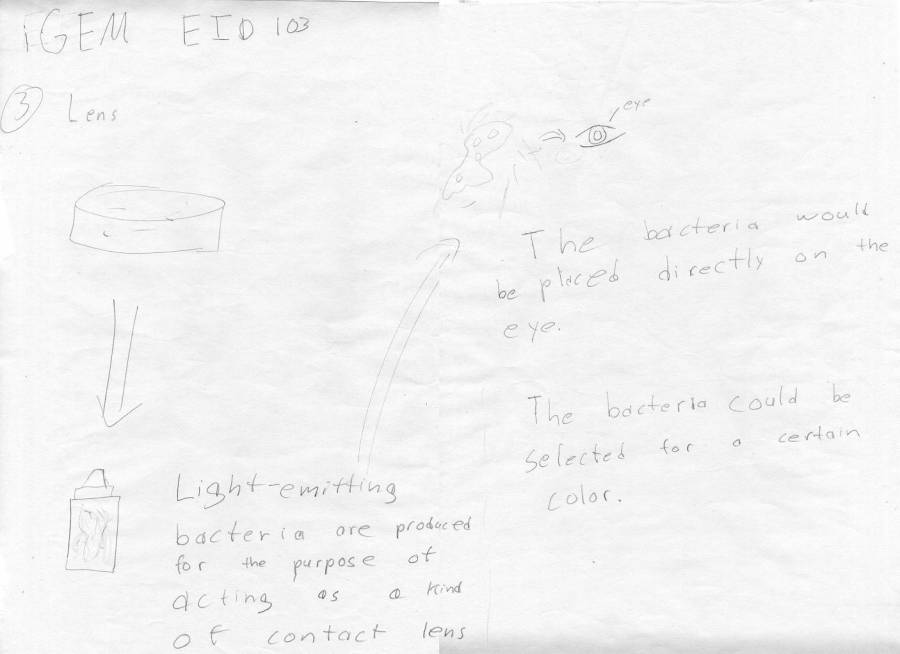 iGEM EID 103
3 Lens
eye
The bacteria would
be placed directly on the
eye.
The bacteria could be
selected for a certain
color.
Light-emitting
bacteria are produced
for the purpose of
acting as a kind
of contact lens